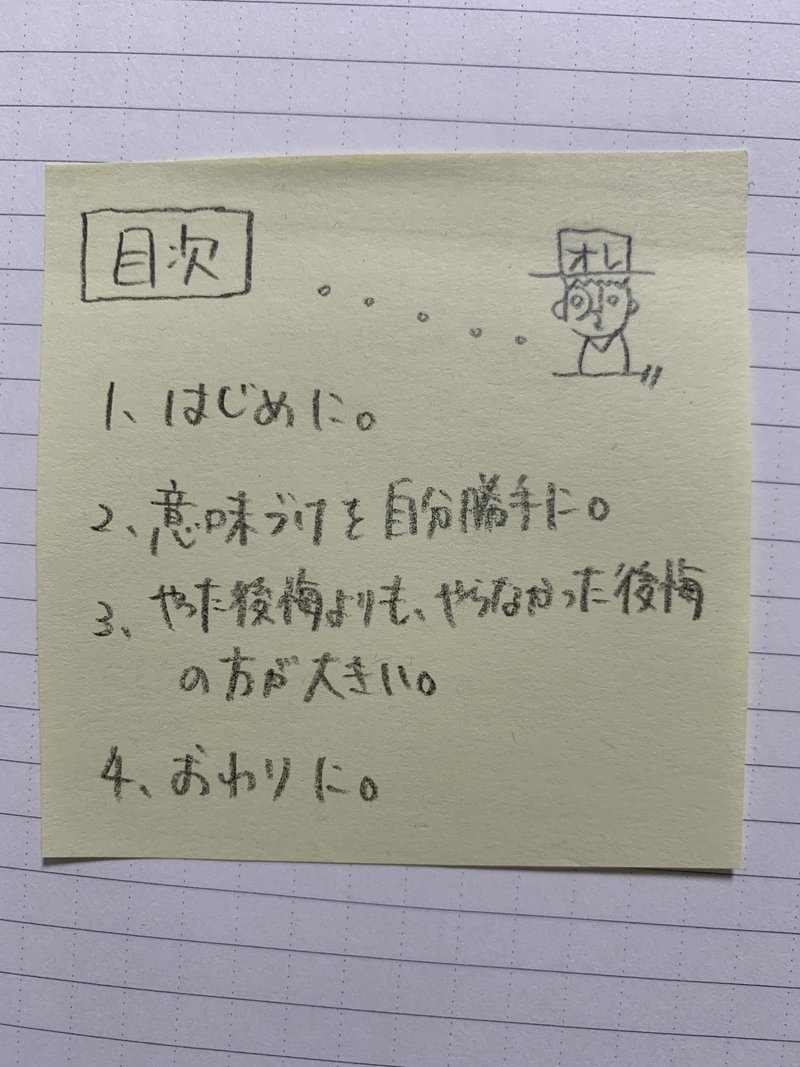 目次
オレ
1、はじめに。
2、意味づけを自分勝手に。
3、やった後悔よりも、やらなかった後悔
の方が大きい。
4、おわりに。